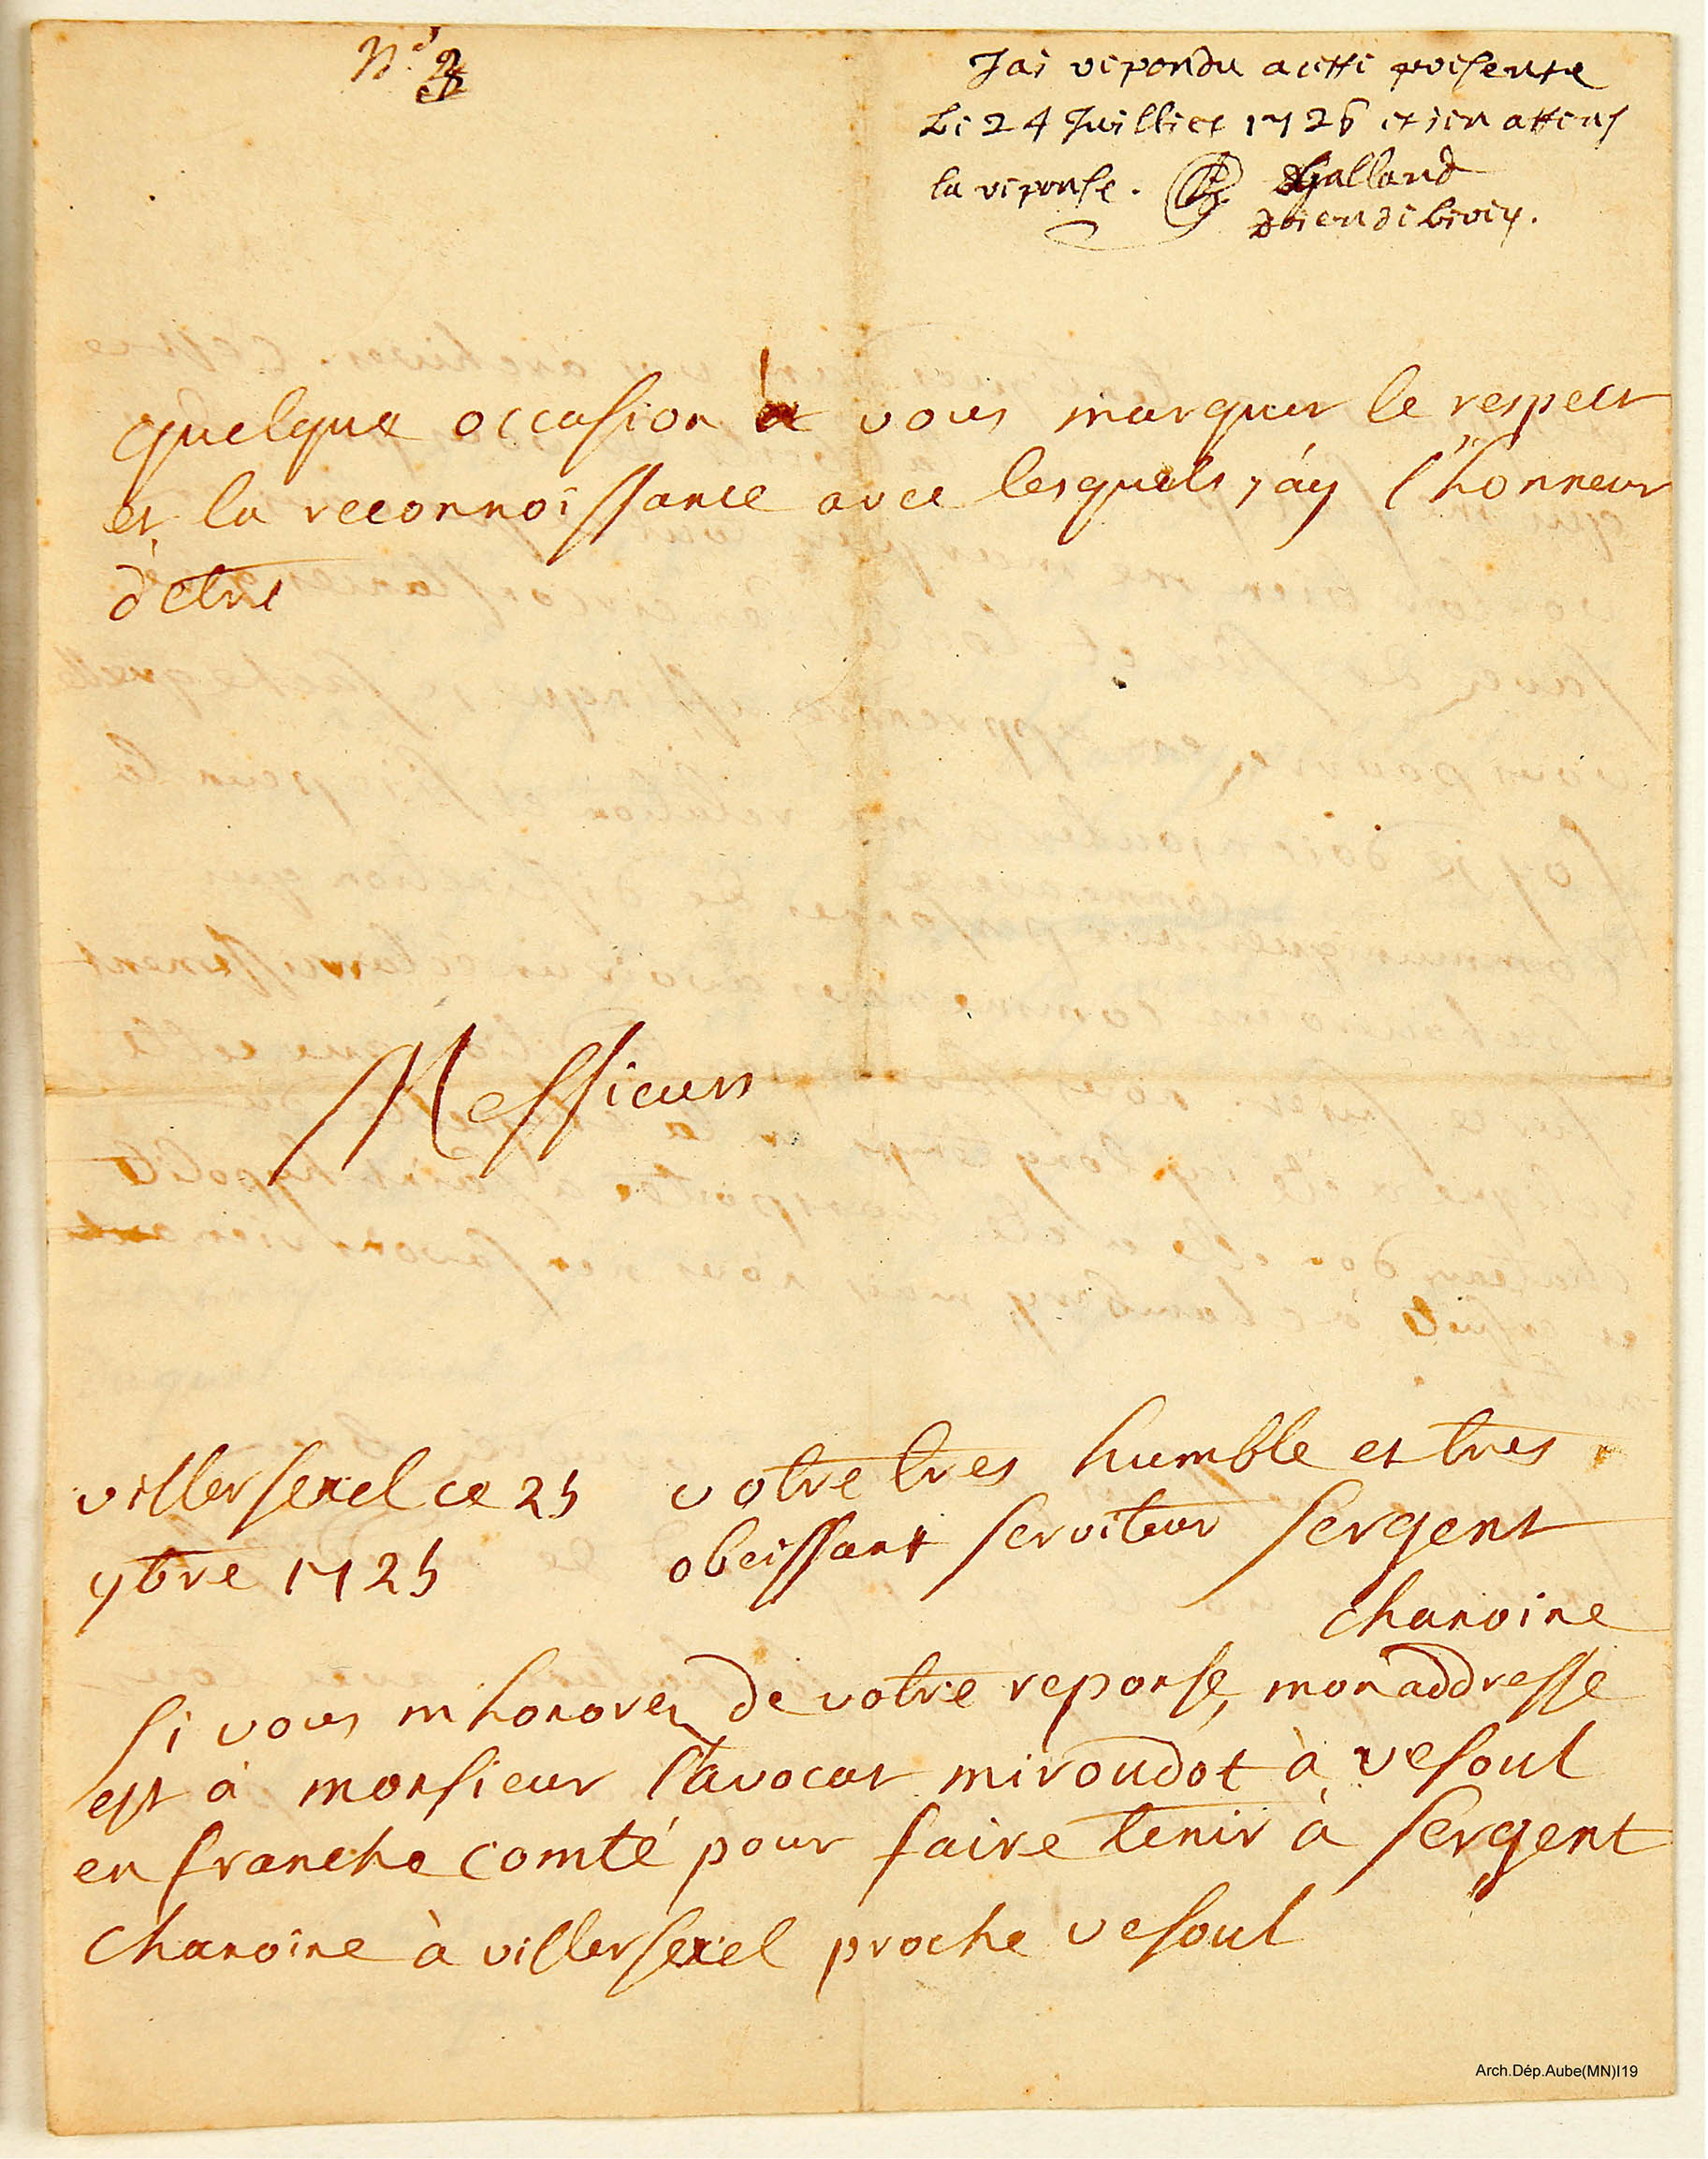 N.º 2
Jai repondu a cette presente
Le 24 Juilliet 1726 et jen attens
la reponse. DGalland
Doien de Lirey.
quelque occasion a vous marquer le respect
et la reconnoissance avec lesquels j'ay l'honneur
d'etre
Messieurs
villersexel ce 25 votre tres humble et tres
9bre 1725 obeissant serviteur Sergent
chanoine
si vous mhonorez de votre reponse, mon addresse
est à monsieur l'avocat miroudot à vesoul
en franche comté pour faire tenir à Sergent
chanoine à villersexel proche vesoul
Arch.Dép.Aube(MN)I19